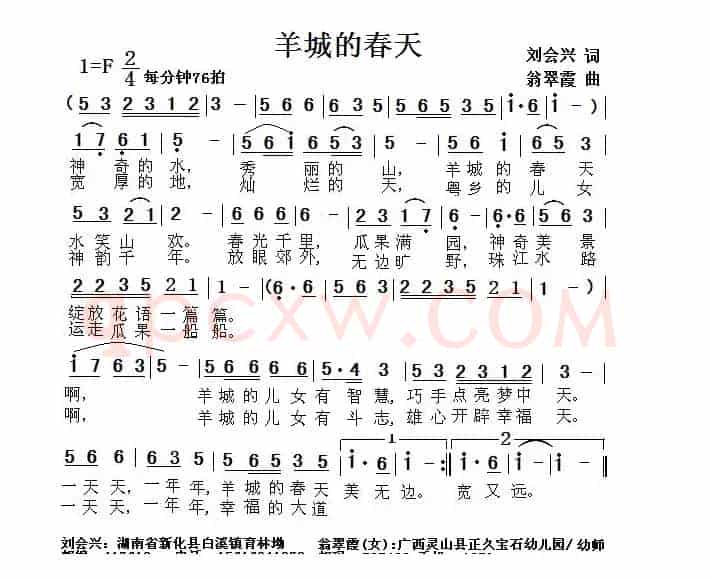 羊城的春天
刘会兴 词
1=F 2/4 每分钟76拍
翁翠霞 曲
( 5 3 2 3 1 2 | 3 - | 5 6 6 | 6 3 5 | 5 6 2 6 5 | i·6 | i - )
1 7 6 1 | 5 - | 5 6 i 6 5 3 | 5 - | i·6 | 6 5 3
神 奇的水, 秀 丽的山, 羊城的春天
宽 厚的地, 灿 烂的天, 粤乡的儿女
5 3 2 1 | 2 - | 6 6 6 6 | 2 3 1 7 | 6 - | 6·6 5 3
水笑山 欢。 春光千里, 瓜果满 园, 神奇美 景
神韵千 年。 放眼郊外, 无边旷 野, 珠江水 路
2 2 3 5 2 1 | 1 - | (6·6 5 3 | 2 2 3 5 2 1 | 1 - )
绽放花语一篇篇。
运走瓜果一船船。
qpcxw.COM
i 7 6 3 | 5 - | 5 6 6 6 6 | 5·4 3 | 5 3 2 3 1 2 | 3 -
啊, 羊城的儿女有 智慧, 巧手点亮梦中 天。
啊, 羊城的儿女有 斗志, 雄心开辟幸福 天。
5 6 6 | 6 3 5 | 5 6 5 6 5 3 5 | 1 i·6 | i - :‖ 2 i·6 | i - ‖
一天天, 一年年, 羊城的春天 美无边。 宽又远。
一天天, 一年年, 幸福的大道
刘会兴: 湖南省新化县白溪镇育林坳 翁翠霞(女): 广西灵山县正久宝石幼儿园/幼师